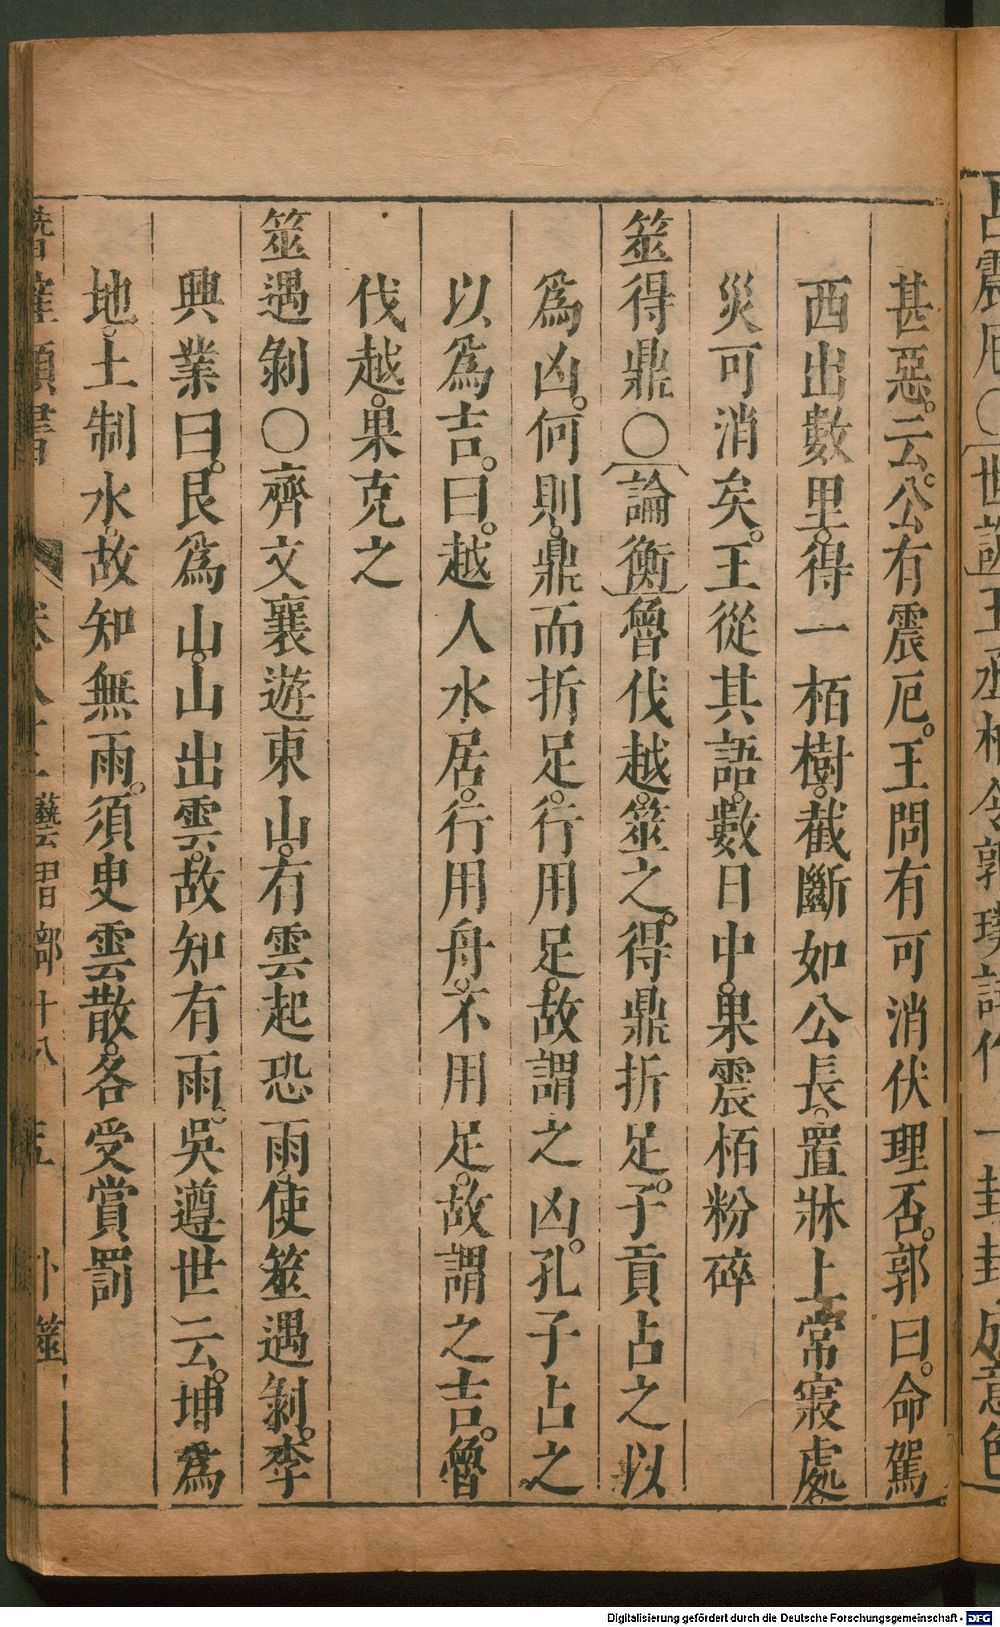 占震厄〇世說王丞相令郭璞試作一卦卦成意色
甚惡。云。公有震厄。王問有可消伏理否。郭曰。命駕
西出數里。得一栢樹。截斷如公長。置牀上常寢處。
災可消矣。王從其語。數日中。果震栢粉碎
筮得鼎〇論衡魯伐越。筮之。得鼎折足。子貢占之以
為凶。何則。鼎而折足。行用足。故謂之凶。孔子占之
以為吉。曰。越人水居。行用舟。不用足。故謂之吉。魯
伐越。果克之
筮遇剝〇齊文襄遊東山。有雲起恐雨。使筮遇剝。李
興業曰。艮為山。山出雲。故知有雨。吳遵世云。坤為
地。土制水。故知無雨。須臾雲散。各受賞罰
潛確類書 卷八十二 藝習部十八 五 卜筮
Digitalisierung gefördert durch die Deutsche Forschungsgemeinschaft - DFG